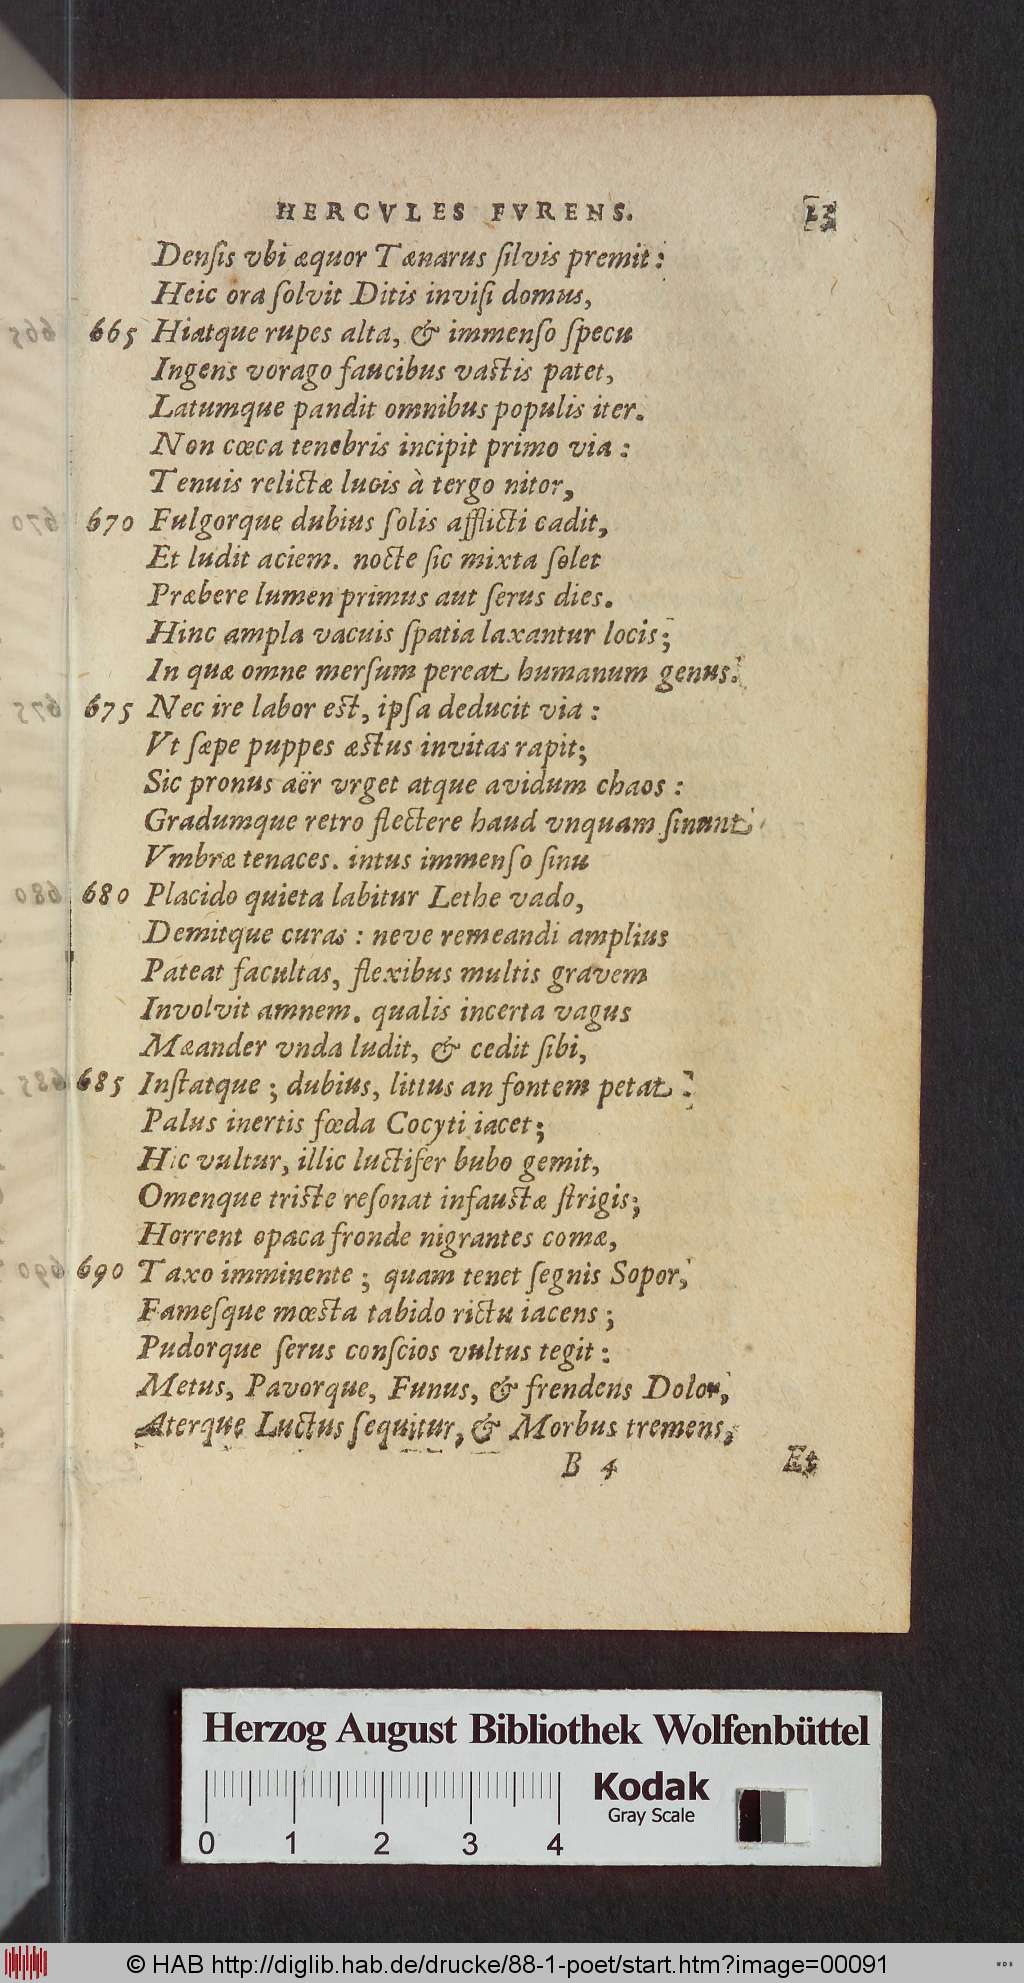 HERCVLES FVRENS. 23
Densis vbi æquor Tænarus silvis premit:
Heic ora solvit Ditis invisi domus,
665 Hiatque rupes alta, & immenso specu
Ingens vorago faucibus vastis patet,
Latumque pandit omnibus populis iter.
Non cœca tenebris incipit primo via:
Tenuis relictæ lucis à tergo nitor,
670 Fulgorque dubius solis afflicti cadit,
Et ludit aciem. nocte sic mixta solet
Præbere lumen primus aut serus dies.
Hinc ampla vacuis spatia laxantur locis;
In quæ omne mersum pereat humanum genus.
675 Nec ire labor est, ipsa deducit via:
Vt sæpe puppes æstus invitas rapit;
Sic pronus aër vrget atque avidum chaos:
Gradumque retro flectere haud vnquam sinunt
Vmbræ tenaces. intus immenso sinu
680 Placido quieta labitur Lethe vado,
Demitque curas: neve remeandi amplius
Pateat facultas, flexibus multis gravem
Involvit amnem. qualis incerta vagus
Mæander vnda ludit, & cedit sibi,
685 Instatque; dubius, littus an fontem petat:
Palus inertis fœda Cocyti iacet;
Hic vultur, illic luctifer bubo gemit,
Omenque triste resonat infaustæ strigis;
Horrent opaca fronde nigrantes comæ,
690 Taxo imminente; quam tenet segnis Sopor,
Famesque mœsta tabido rictu iacens;
Pudorque serus conscios vultus tegit:
Metus, Pavorque, Funus, & frendens Dolor,
Aterque Luctus sequitur, & Morbus tremens,
B 4 Et
Herzog August Bibliothek Wolfenbüttel
0 1 2 3 4
Kodak
Gray Scale
© HAB http://diglib.hab.de/drucke/88-1-poet/start.htm?image=00091